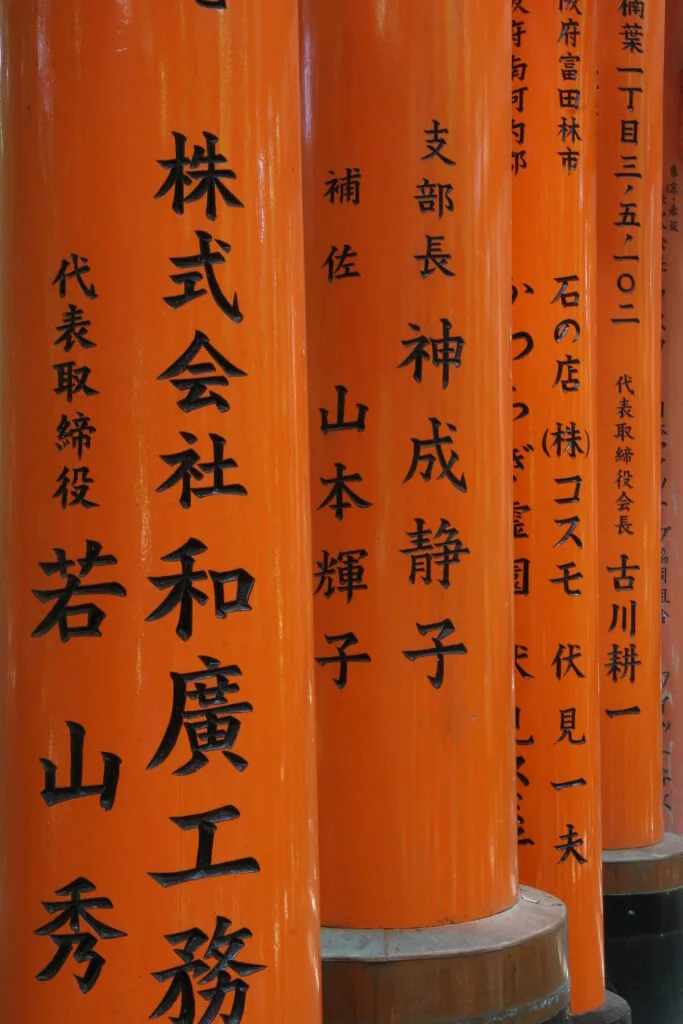 株式会社和廣工務
代表取締役 若山秀
支部長 神成静子
補佐 山本輝子
阪府富田林市
石の店 (株)コスモ 伏見一夫
府南河内郡
かつらぎ霊園
楠葉一丁目三、五、一〇二
代表取締役会長 古川耕一
東京・赤坂